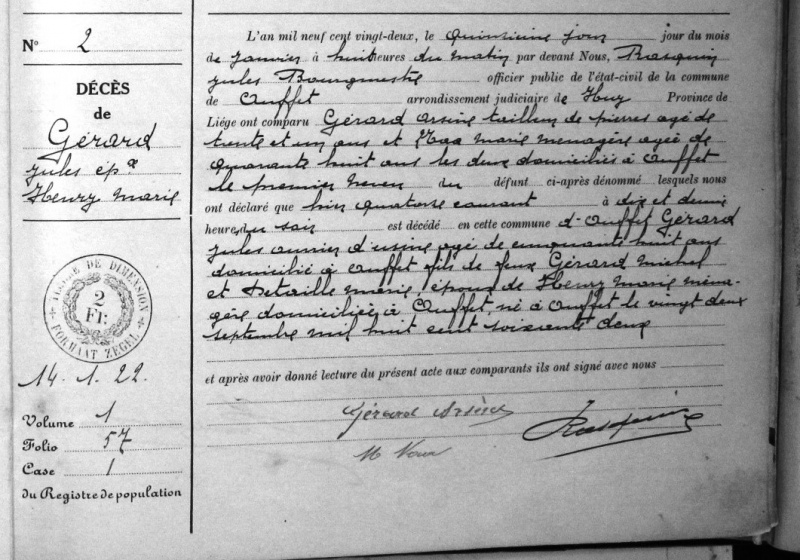 N° 2
DÉCÈS
de
Gérard
Jules ép
Henry Marie
TIMBRE DE DIMENSION
2
Fr.
FORMAAT ZEGEL
14.1.22.
Volume 1
Folio 57
Case 1
du Registre de population
L'an mil neuf cent vingt-deux, le quinzième jour jour du mois
de janvier à huit heures du matin par devant Nous, Rasquin
Jules Bourgmestre officier public de l'état-civil de la commune
de Ouffet arrondissement judiciaire de Huy Province de
Liége ont comparu Gérard Arsène tailleur de pierres agé de
trente et un ans et Marie menagère agée de
quarante huit ans les deux domiciliés à Ouffet
le premier neveu du défunt ci-après dénommé lesquels nous
ont déclaré que hier quatorze courant à dix et demie
heure, du soir est décédé en cette commune d'Ouffet Gérard
Jules ouvrier d'usine agé de cinquante huit ans
domicilié à Ouffet fils de feux Gérard Michel
et Detaille Marie époux de Henry Marie ména-
gère domiciliée à Ouffet né à Ouffet le vingt deux
septembre mil huit cent soixante deux
et après avoir donné lecture du présent acte aux comparants ils ont signé avec nous
Gérard Arsène
Rasquin
M